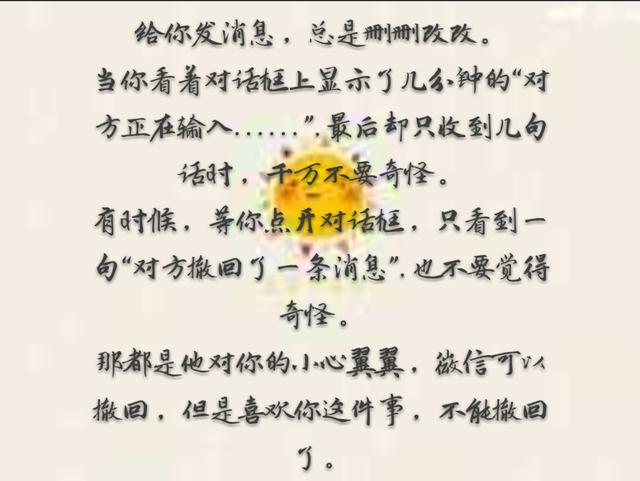 给你发消息，总是删删改改。
当你看着对话框上显示了几分钟的“对
方正在输入......”.最后却只收到几句
话时，千万不要奇怪。
有时候，等你点开对话框，只看到一
句“对方撤回了一条消息”.也不要觉得
奇怪。
那都是他对你的小心翼翼，微信可以
撤回，但是喜欢你这件事，不能撤回
了。